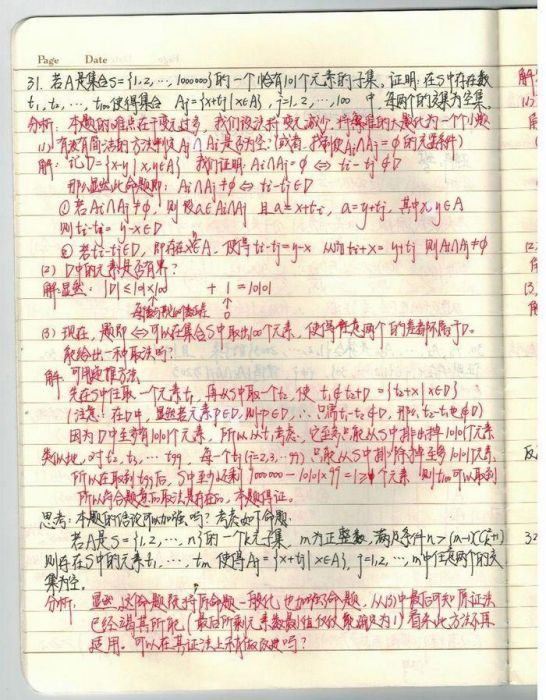 Page Date
31. 若A是集合S={1,2,…,1000000}的一个恰有101个元素的子集. 证明:在S中存在数
t₁,t₂,…,t₁₀₀使得集合 Aj={x+tj|x∈A}, j=1,2,…,100 中,每两个的交集为空集.
分析: 本题的难点在于变元过多, 我们设法将变元减少, 将繁难的大题化为一个个小题
(1) 有没有简洁的方法判定Ai∩Aj是否为空? (或者, 找到使Ai∩Aj=Ø的充要条件)
解: 记D={x-y|x,y∈A} 我们证明: Ai∩Aj=Ø ⇔ ti-tj∉D
那么显然此命题即: Ai∩Aj≠Ø ⇔ ti-tj∈D
① 若Ai∩Aj≠Ø, 则设a∈Ai∩Aj 且a=x+ti, a=y+tj, 其中x,y∈A
则ti-tj=y-x∈D
② 若ti-tj∈D, 即存在x∈A, 使得ti-tj=y-x 从而ti+x=y+tj 则Ai∩Aj≠Ø
(2) D中的元素是否有界?
解:显然: |D|≤101×100 +1=10101
0
(3) 现在, 题即⇔可以在集合S中取出100个元素, 使得任意两个的差都不属于D.
能给出一种取法吗?
解: 可用递推方法
先在S中任取一个元素t₁, 再从S中取一个t₂, 使 t₂∉t₁+D={t₁+x|x∈D}
(注意: 在D中, 显然若元素p∈D, 则-p∈D, ∴只需t₁-t₂∉D, 那么t₂-t₁也∉D)
因为D中至多有10101个元素, 所以从t₁考虑, 它至多只能从S中排除掉10101个元素
类似地, 对t₂,t₃,…t₉₉, 每一个ti(i=2,3,…99)只能从S中排除掉至多10101元素
所以在取到t₉₉后, S中至少还剩1000000-10101×99=1≥1个元素 则t₁₀₀可以取到
所以符合题意的取法是存在的. 本题得证.
思考: 本题的结论可以加强吗? 考虑如下命题:
若A是S={1,2,…,n}的一个k元子集, m为正整数, 满足条件n>(m-1)(C²ₖ+1)
则存在S中的元素t₁,…,tm 使得Aj={x+tj|x∈A}, j=1,2,…,m中任意两个的交
集为空.
分析: 显然,这命题既将原命题一般化也加强了命题, 从(3)中最后可知原证法
已经竭其所能,(最后所剩元素数最值仅仅能满足为1) 看来此方法不再
适用. 可以在其证法上不作做改进吗?